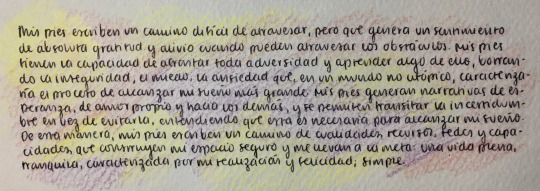 Mis pies escriben un camino difícil de atravesar, pero que genera un sentimiento
de absoluta gratitud y alivio cuando pueden atravesar los obstáculos. Mis pies
tienen la capacidad de afrontar toda adversidad y aprender algo de ello, borran-
do la inseguridad, el miedo, la ansiedad que, en un mundo no utópico, caracteriza-
ría el proceso de alcanzar mi sueño más grande. Mis pies generan narrativas de es-
peranza, de amor propio y hacia los demás, y se permiten transitar la incertidum-
bre en vez de evitarla, entendiendo que esta es necesaria para alcanzar mi sueño.
De esta manera, mis pies escriben un camino de cualidades, recursos, redes y capa-
cidades, que construyen mi espacio seguro y me llevan a la meta: una vida plena,
tranquila, caracterizada por mi realización y felicidad; simple.